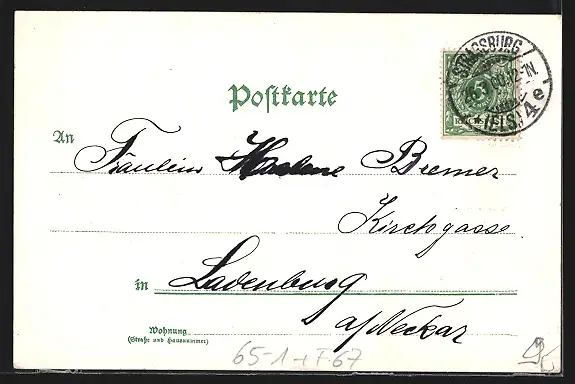 STRASSBURG
12-1N.
(ELS.) 4e
5
Postkarte
An
Fräulein Bremer
Kirchgasse
in Ladenburg
a/Neckar
Wohnung
(Straße und Hausnummer)
65-1-1F-67